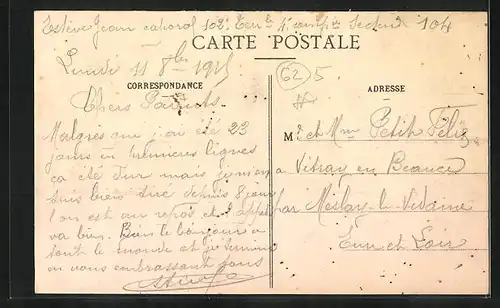 Estève Jean caporal 102e Terr. 4e comp. Secteur 104
CARTE POSTALE
Lundi 11 8bre 1915
62 5
CORRESPONDANCE
ADRESSE
Chers Parents.
Malgrès que j'ai été 23
jours en premieres lignes
ça été dur mais je m'en
suis bien tiré depuis 8 jours
l'on est au repos et l'appetit
va bien. Bien le bonjour à
tout le monde et je termine
en vous embrassant tous
Estève
M. et Mme Petit Félix
à
Vitray en Beauce
par Meslay-le-Vidame
Eure et Loir